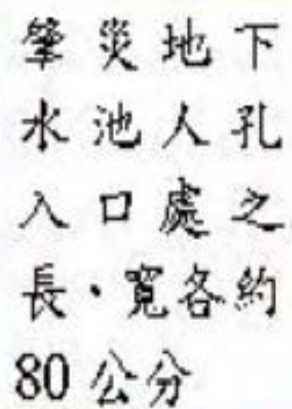 肇災地下
水池人孔
入口處之
長、寬各約
80公分